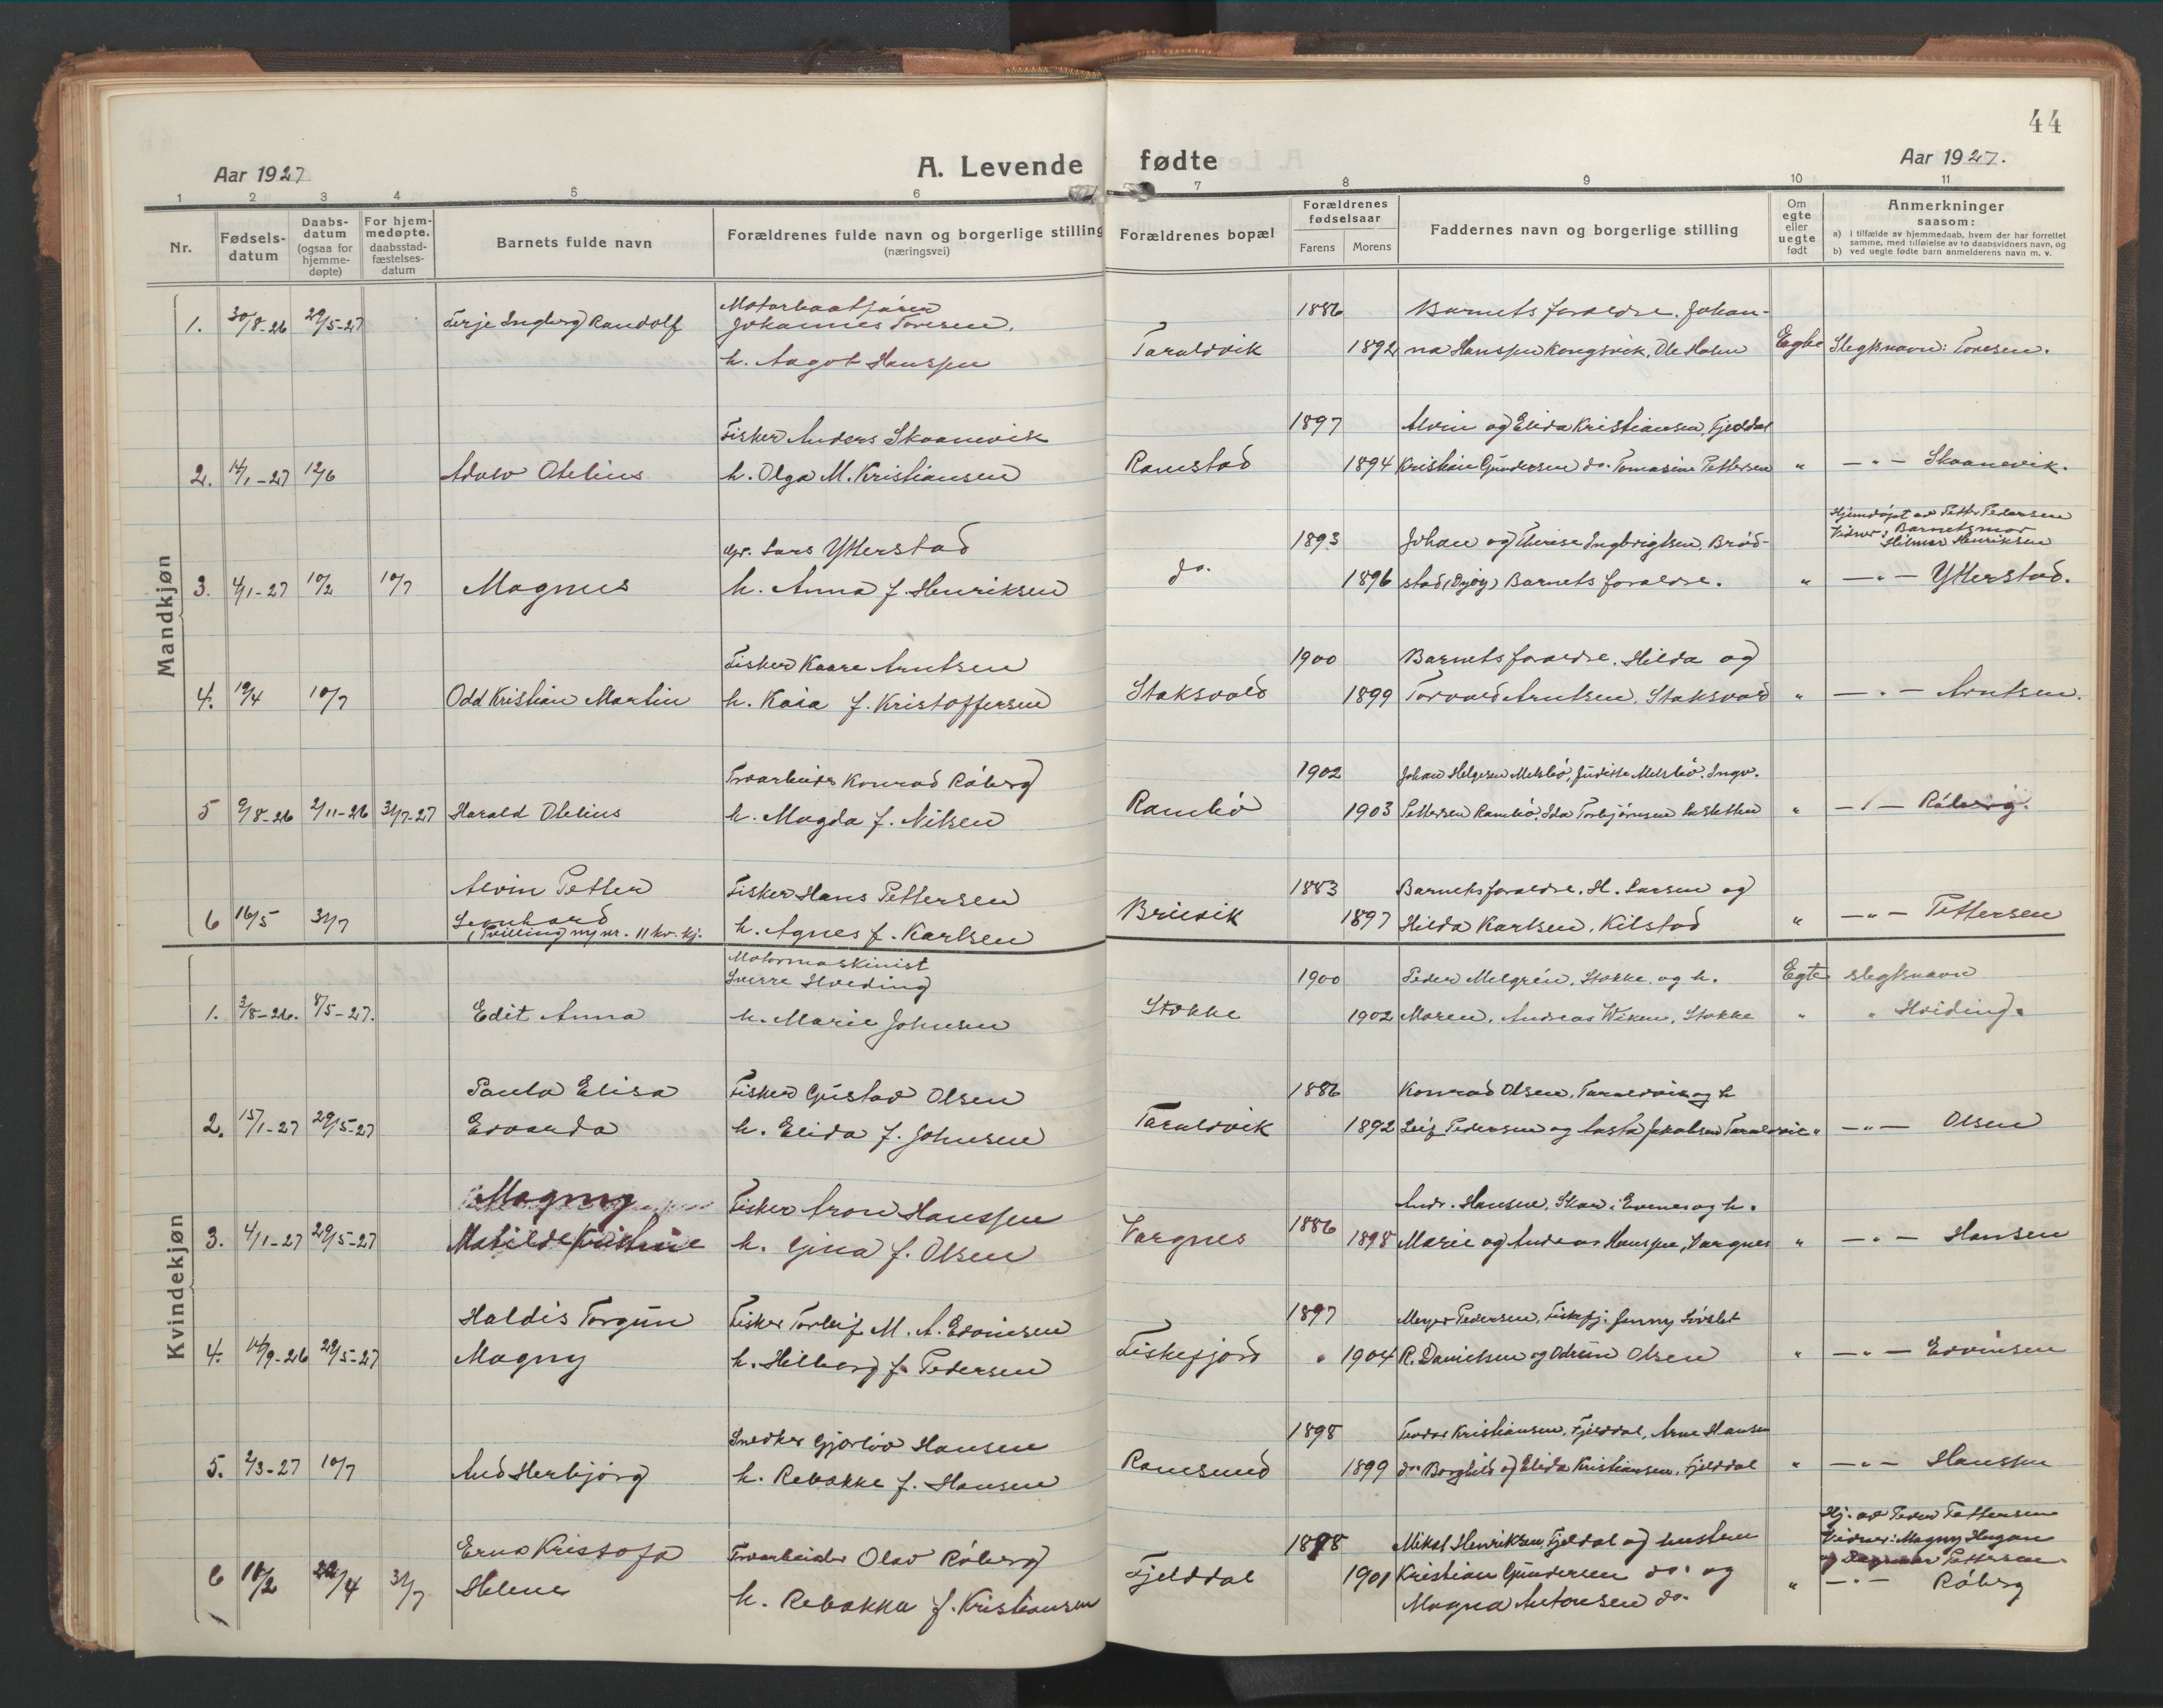 44
Aar 1927
A. Levende fødte
Aar 1927.
1 2 3 4 5 6 7 8 9 10 11
Nr.
Fødsels-
datum
Daabs-
datum
(ogsaa for
hjemme-
døpte)
For hjem-
medøpte.
daabsstad-
fæstelses-
datum
Barnets fulde navn
Forældrenes fulde navn og borgerlige stilling
(næringsvei)
Forældrenes bopæl
Forældrenes
fødselsaar
Farens Morens
Faddernes navn og borgerlige stilling
Om
egte
eller
uegte
født
Anmerkninger
saasom:
a) i tilfælde av hjemmedaab, hvem der har forrettet
samme, med tilføielse av to daabsvidners navn, og
b) ved uegte fødte barn anmelderens navn m. v.
Mandkjøn
Motorbaatfører
1. 30/8-26 29/5-27 Terje Ingberg Randolf Johannes Toresen. 1886 Barnets forældre. Johan-
h. Aagot Hanssen Taraldvik 1892 na Hanssen Kongsvik, Ole Holm Egte Slegtsnavn: Toresen.
Fisker Anders Skaanevik 1897 Alvin og Elida Kristiansen, Fjeldal
2. 14/1-27 12/6 Advov Otelius h. Olga M. Kristiansen Ramstad 1894 Kristian Gundersen do. Tomasine Pettersen " — " — Skaanevik.
Hjemdøpt av Petter Pedersen
Vidner: Barnets mor
Hilmar Henriksen
gr. Lars Ytterstad 1893 Johan og Therese Ingbrigtsen, Brød-
3. 4/1-27 10/2 10/7 Magnus h. Anna f. Henriksen do. 1896 stad, Barnets forældre. " — " — Ytterstad.
Fisker Kaare Arntsen 1900 Barnets forældre. Hilda og
4. 19/4 10/7 Odd Kristian Martin h. Kaia f. Kristoffersen Staksvold 1899 Torvald Arntsen, Staksvold " — " — Arntsen.
Troarbeider Konrad Råberg 1902 Johan Helgesen Melsbö, Juditte Melsbö. Ingv.
5 9/8-26 2/11-26 31/7-27 Harald Otelius h. Magda f. Nilsen Rambö 1903 Pettersen Rambö, Ida Torbjørnsen " — " — Råberg.
Alvin Petter Fisker Hans Pettersen 1883 Barnets forældre. H. Larsen og
6 16/5 31/7 Leonhard h. Agnes f. Karlsen Bruvik 1897 Hilda Karlsen, Kilstad " — " — Pettersen
(Tvilling m/ nr. 11 kv. kj.
Kvindekjøn
Motormaskinist
Sverre Hveding 1900 Peder Melgrén, Stokke og h. Egte slegtsnavn
1. 3/8-26. 8/5-27. Edit Anna h. Marie Johnsen Stokke 1902 Maren, Andreas Wiken, Stokke " " Hveding.
Paula Elisa Fisker Gustav Olsen 1886 Konrad Olsen, Taraldvik og h
2. 15/1-27 29/5-27 Edvarda h. Elida f. Johnsen Taraldvik 1892 Leif Pedersen og Aasta Jakobsen Taraldvik " — " — Olsen
Magny Fisker Aron Hanssen Andr. Hansen, Skar i Evenes og h.
3. 4/1-27 29/5-27 Matilde Kristine h. Gina f. Olsen Vargnes 1886 1898 Marie og Andreas Hanssen, Vargnes " — " — Hansen
Haldis Torgun Fisker Torleif M. A. Edvinsen 1897 Meyer Pedersen, Fiskefj. Jenny Løvslet
4. 14/9-26 29/5-27 Magny h. Hilborg f. Pedersen Fiskefjord 1904 R. Danielsen og Odrun Olsen " — " — Edvinsen
Snedker Gjørløv Hansen 1898 Teodor Kristiansen, Fjelddal, Arne Hansen
5. 2/3-27 10/7 Aud Herbjørg h. Rebakke f. Hansen Ramsund 1899 do. Borghild og Elida Kristiansen, Fjelddal " — " — Hanssen
Hj. av Peder Pettersen
Vidner: Magny Hagan
og Dagmar Pettersen.
Erna Kristofa Troarbeider Olav Råberg 1898 Mikal Henriksen Fjeldal og hustru
6 18/2 22/4 31/7 Helene h. Rebakka f. Kristiansen Fjelddal 1901 Kristian Gundersen do. og " — " — Råberg
Magna Antonsen do.